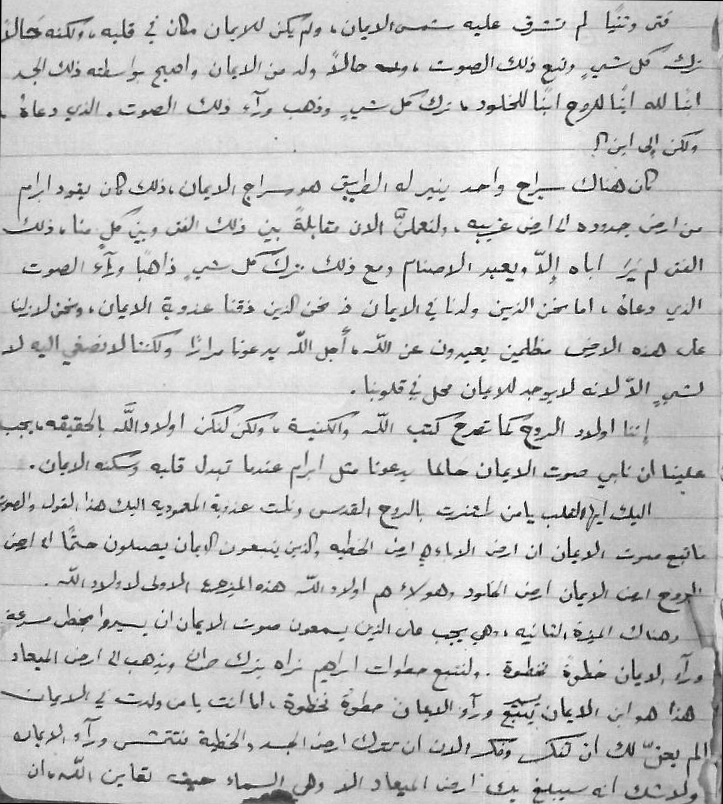 فتى وثنيًا لم تشرق عليه شمس الايمان، ولم يكن للايمان مكان في قلبه، ولكنه حالاً
ترك كل شيءٍ وتبع ذلك الصوت، حالاً ولد من الايمان واصبح بواسطته ذلك الجسد
ابنًا لله ابنًا للروح ابنًا للخلود، ترك كل شيءٍ وذهب ورآء ذلك الصوت. الذي دعاهُ.
ولكن إلى اين؟!
كان هناك سراج واحد ينير له الطريق هو سراج الايمان، ذلك كان يقود ابرام
من ارض جدوده الى ارض غريبه، ولنعملنَّ الان مقابلةً بين ذلك الفتى وبين كلٍ منا، ذلك
الفتى لم يَرَ اباه إلاّ ويعبد الاصنام ومع ذلك ترك كل شيءٍ ذاهبًا ورآء الصوت
الذي دعاهُ، اما نحن الذين ولدنا في الايمان نحن الذين ذقنا عذوبة الايمان، ونحن لازلنا
على هذه الارض مظلمين بعيدون عن الله، أجل الله يدعونا مرارًا ولكننا لا نصغي اليه لا
لشيءٍ الاّ لانه لايوجد للايمان محل في قلوبنا.
إننا اولاد الروح كما تصرح كتب الله والكنيسة، ولكن لنكن اولاد الله بالحقيقه، يجب
علينا ان نلبي صوت الايمان حالما يدعونا مثل ابرام عندما تبدل قلبه وسكنه الايمان.
اليك ايها القلب يامن استنرت بالروح القدس ونلت عذوبة المعموديه اليك هذا القول والصوت
ما تبع صوت الايمان ان ارض الاباء هي ارض الخطيه والذين يتبعون الايمان يصلون حتمًا الى ارض
الروح ارض الايمان ارض الخلود وهولاء هم اولاد الله هذه الميزة الاولى لاولاد الله.
وهناك الميزة الثانيه، وهي يجب على الذين يسمعون صوت الايمان ان يسيروا بخطى مسرعة
ورآء الايمان خطوةً فخطوة. ولنتبع خطوات ابراهيم نراه يترك حران ويذهب الى ارض الميعاد
هذا هو ابن الايمان يتبع ورآء الايمان خطوةً فخطوة، اما انت يا من ولدت في الايمان
الم يحنّ لك ان تفكر وفكر الان ان تترك ارض الجسد والخطية فتتمشى ورآء الايمان
ولاشك انه سيبلغ بك ارض الميعاد الا وهي السماء حيث تعاين الله، ان